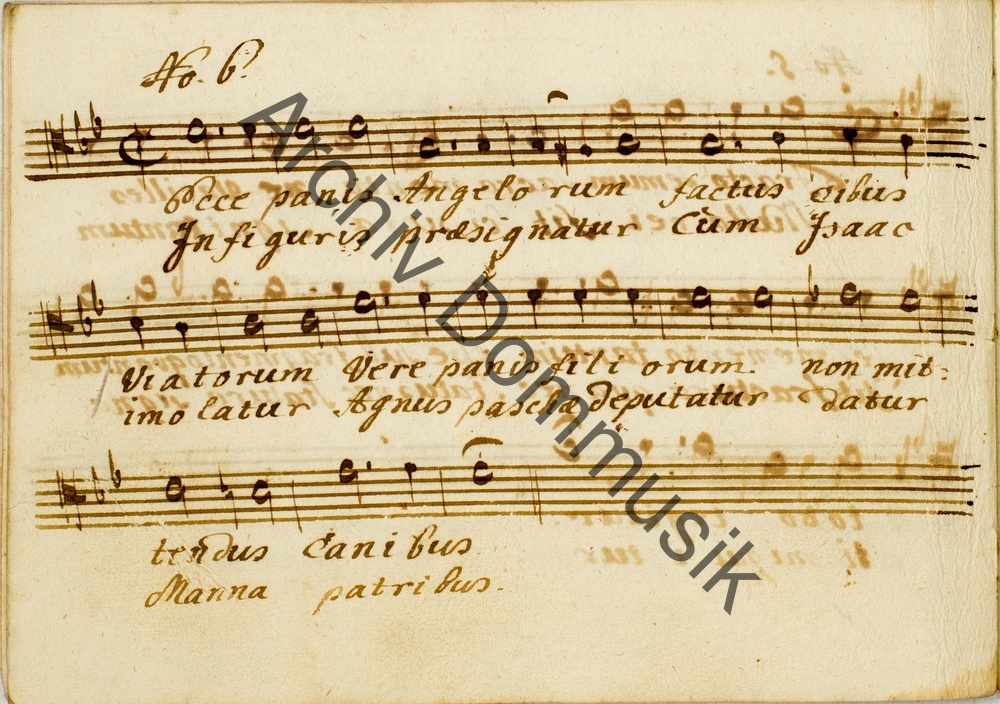 No. 6.
Ecce panis Angelo rum factus cibus
In figuris præsignatur Cum Isaac
Viatorum Vere panis fili orum. non mit:
imo latur Agnus paschæ deputatur datur
tendus Canibus
Manna patribus.
Archiv Dommusik